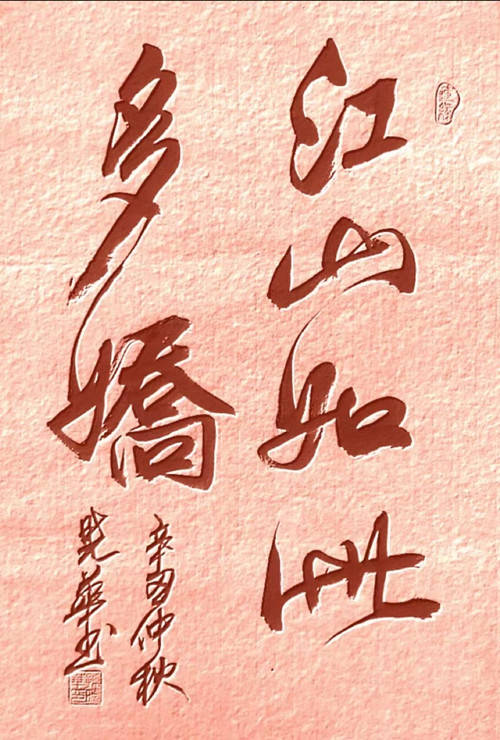 江山如此
多嬌
辛酉仲秋
華书